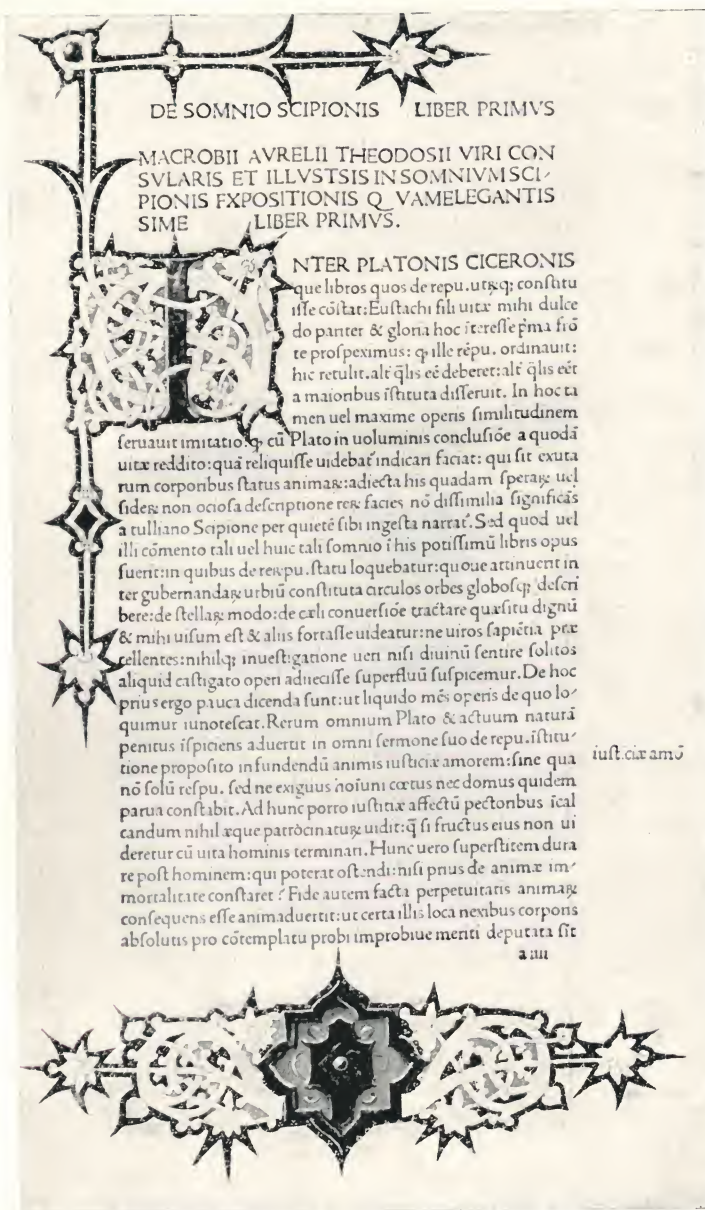 DE SOMNIO SCIPIONIS LIBER PRIMVS
MACROBII AVRELII THEODOSII VIRI CON
SVLARIS ET ILLVSTSIS IN SOMNIVM SCI⸗
PIONIS EXPOSITIONIS Q VAMELEGANTIS
SIME LIBER PRIMVS.
INTER PLATONIS CICERONIS
que libros quos de repu. utꝝq; conſtitu
iſſe cōſtat: Euſtachi fili uitæ mihi dulce
do pariter & gloria hoc ītereſſe p̄ma frō
te proſpeximus: ꝙ ille rēpu. ordinauit:
hic retulit. alt̄ q̄lis eē deberet: alt̄ q̄lis eēt
a maioribus īſtituta diſſeruit. In hoc ta
men uel maxime operis ſimilitudinem
ſeruauit imitatio: ꝙ cū Plato in uoluminis concluſiōe a quodā
uitæ reddito: quā reliquiſſe uidebat̄ indicari faciat: qui ſit exuta
rum corporibus ſtatus animaꝝ: adiecta his quadam ſperaꝝ uel
ſideꝝ non ocioſa deſcriptione reꝝ facies nō diſſimilia ſignificās
a tulliano Scipione per quietē ſibi ingeſta narrat̄. Sed quod uel
illi cōmento tali uel huic tali ſomnio ī his potiſſimū libris opus
fuerit: in quibus de reꝝpu. ſtatu loquebatur: quoue attinuerit in
ter gubernandaꝝ urbiū conſtituta circulos orbes globoſq; deſcri
bere: de ſtellaꝝ modo: de cæli conuerſiōe tractare quæſitu dignū
& mihi uiſum eſt & aliis fortaſſe uideatur: ne uiros ſapiētia præ
cellentes: nihilq; inueſtigatione ueri niſi diuinū ſentire ſolitos
aliquid caſtigato operi adieciſſe ſuperfluū ſuſpicemur. De hoc
prius ergo pauca dicenda ſunt: ut liquido mēs operis de quo lo⸗
quimur iunoteſcat. Rerum omnium Plato & actuum naturā
penitus īſpiciens aduertit in omni ſermone ſuo de repu. īſtitu⸗
tione propoſito infundendū animis iuſticiæ amorem: ſine qua
nō ſolū reſpu. ſed ne exiguus hoīum cœtus nec domus quidem
parua conſtabit. Ad hunc porro iuſtitiæ affectū pectoribus īcal
candum nihil æque patrocinatuꝝ uidit: q̄ ſi fructus eius non ui
deretur cū uita hominis terminari. Hunc uero ſuperſtitem dura
re poſt hominem: qui poterat oſtendi: niſi prius de animæ im⸗
mortalitate conſtaret? Fide autem facta perpetuitatis animaꝝ
conſequens eſſe animaduertit: ut certa illis loca nexibus corporis
abſolutis pro cōtemplatu probi improbiue meriti deputata ſīt
iuſt.ciæ amō
a iiii